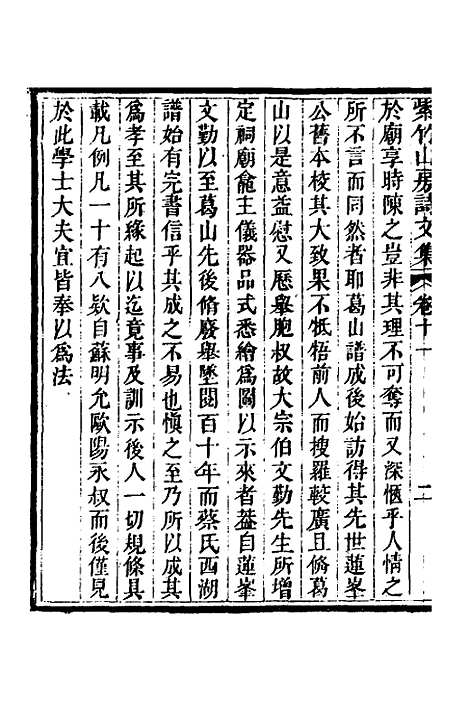 紫竹山房詩文集 卷十一 二
於廟享時陳之豈非其理不可奪而又深愜乎人情之
所不言而同然者耶葛山譜成後始訪得其先世蓮峯
公舊本校其大致果不牴牾前人而搜羅較廣且脩葛
山以是意益慰又愿舉胞叔故大宗伯文勤先生所增
定祠廟龕主儀器品式悉繪爲圖以示來者葢自蓮峯
文勤以至葛山先後脩廢舉墜閱百十年而蔡氏西湖
譜始有完書信乎其成之不易也愼之至乃所以成其
爲孝至其所緣起以迄竟事及訓示後人一切規條具
載凡例凡一十有八欵自蘇明允歐陽永叔而後僅見
於此學士大夫宜皆奉以爲法